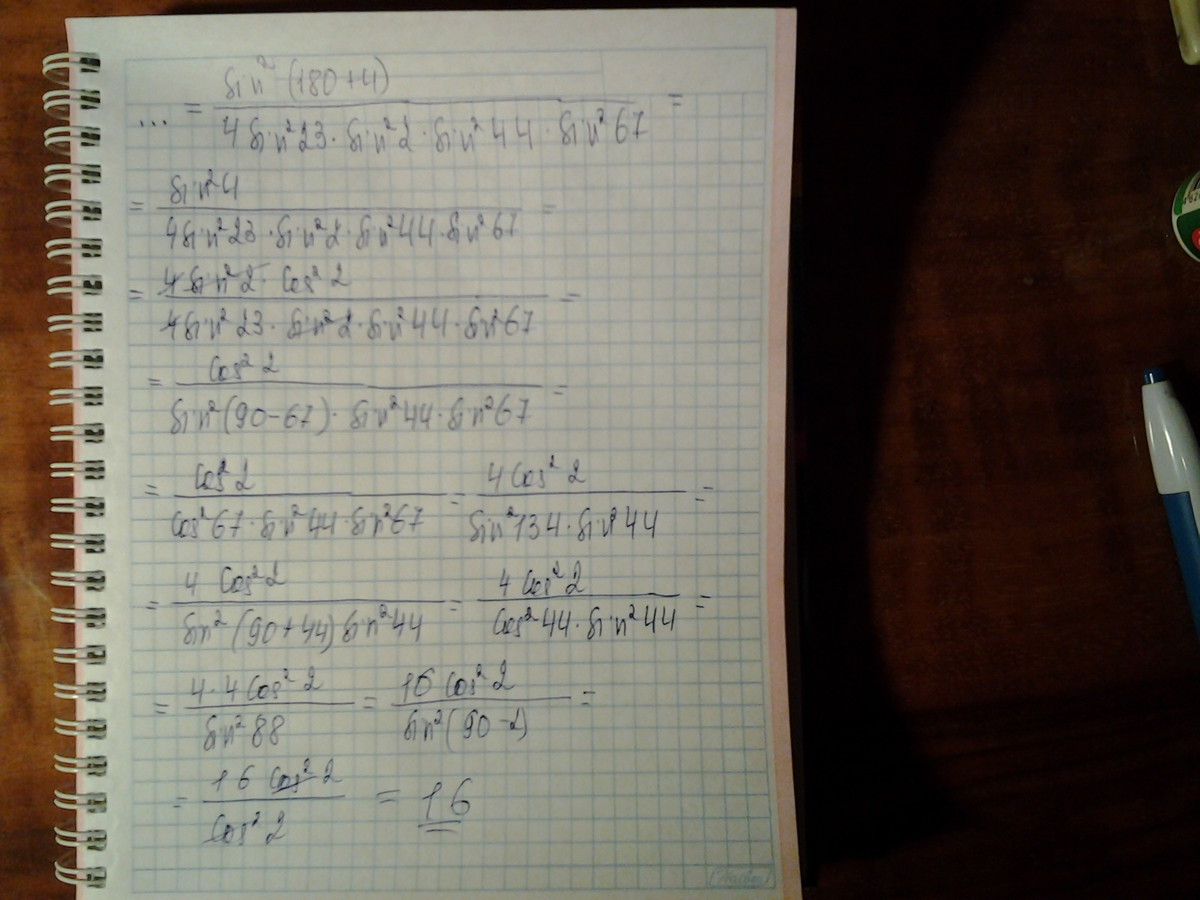 ... = sin² (180+4) / 4 sin² 23 · sin² 2 · sin² 44 · sin² 67 =
= sin² 4 / 4 sin² 23 · sin² 2 · sin² 44 · sin² 67 =
= 4 sin² 2 · cos² 2 / 4 sin² 23 · sin² 2 · sin² 44 · sin² 67 =
= cos² 2 / sin² (90-67) · sin² 44 · sin² 67 =
= cos² 2 / cos² 67 · sin² 44 · sin² 67 = 4 cos² 2 / sin² 134 · sin² 44 =
= 4 cos² 2 / sin² (90+44) sin² 44 = 4 cos² 2 / cos² 44 · sin² 44 =
= 4·4 cos² 2 / sin² 88 = 16 cos² 2 / sin² (90-2) =
= 16 cos² 2 / cos² 2 = 16